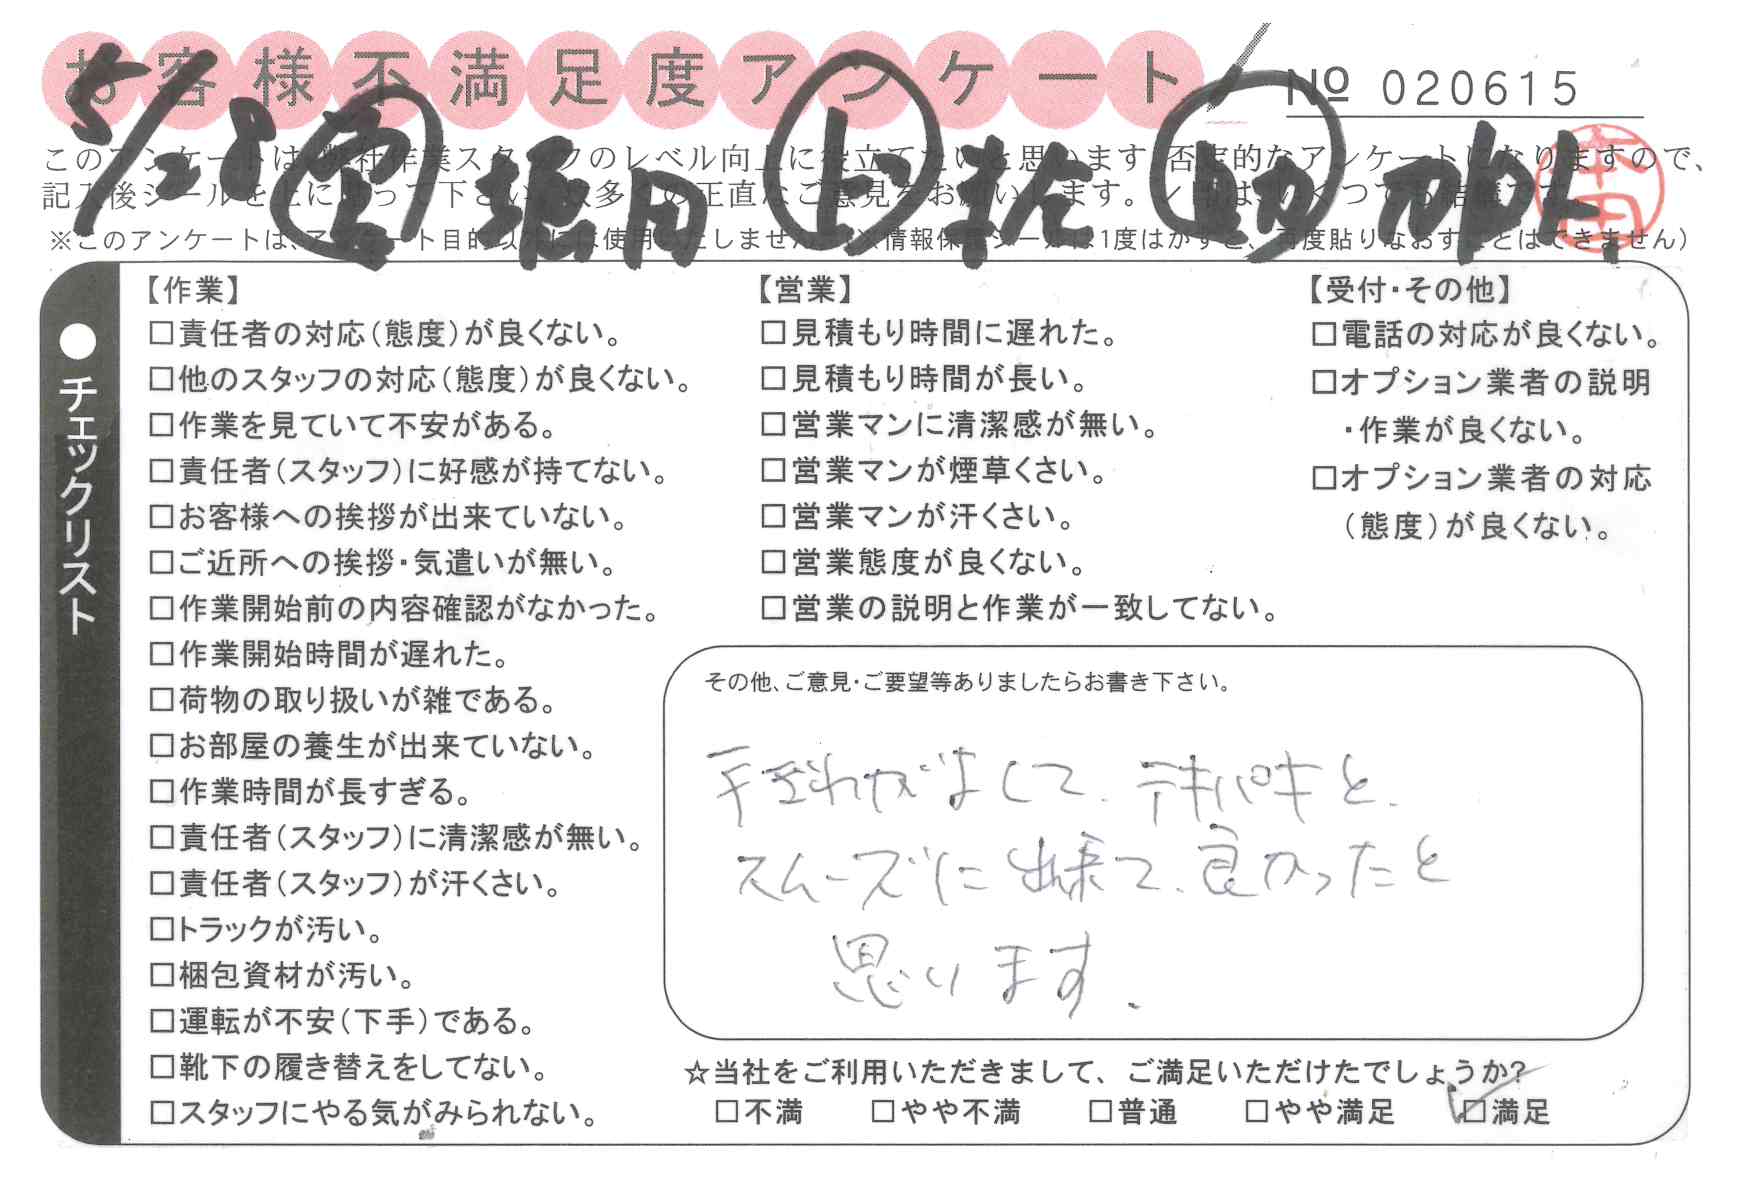 お客様不満足度アンケート
№ 020615
5/28 営 堀内 上 助
このアンケートは、弊社作業スタッフのレベル向上に役立てたいと思います。否定的なアンケートになりますので、
記入後シールを上に貼って下さい。数多くの正直なご意見をお願いします。✓印は、いくつでも結構です。
※このアンケートは、アンケート目的以外には使用いたしません。(※情報保護シールは1度はがすと、再度貼りなおすことはできません)
本田
●チェックリスト
【作業】
□責任者の対応(態度)が良くない。
□他のスタッフの対応(態度)が良くない。
□作業を見ていて不安がある。
□責任者(スタッフ)に好感が持てない。
□お客様への挨拶が出来ていない。
□ご近所への挨拶・気遣いが無い。
□作業開始前の内容確認がなかった。
□作業開始時間が遅れた。
□荷物の取り扱いが雑である。
□お部屋の養生が出来ていない。
□作業時間が長すぎる。
□責任者(スタッフ)に清潔感が無い。
□責任者(スタッフ)が汗くさい。
□トラックが汚い。
□梱包資材が汚い。
□運転が不安(下手)である。
□靴下の履き替えをしてない。
□スタッフにやる気がみられない。
【営業】
□見積もり時間に遅れた。
□見積もり時間が長い。
□営業マンに清潔感が無い。
□営業マンが煙草くさい。
□営業マンが汗くさい。
□営業態度が良くない。
□営業の説明と作業が一致してない。
【受付・その他】
□電話の対応が良くない。
□オプション業者の説明
・作業が良くない。
□オプション業者の対応
(態度)が良くない。
その他、ご意見・ご要望等ありましたらお書き下さい。
手ぎわがよくて、テキパキと、
スムーズに出来て、良かったと
思います。
☆当社をご利用いただきまして、ご満足いただけたでしょうか?
□不満 □やや不満 □普通 □やや満足 ☑満足